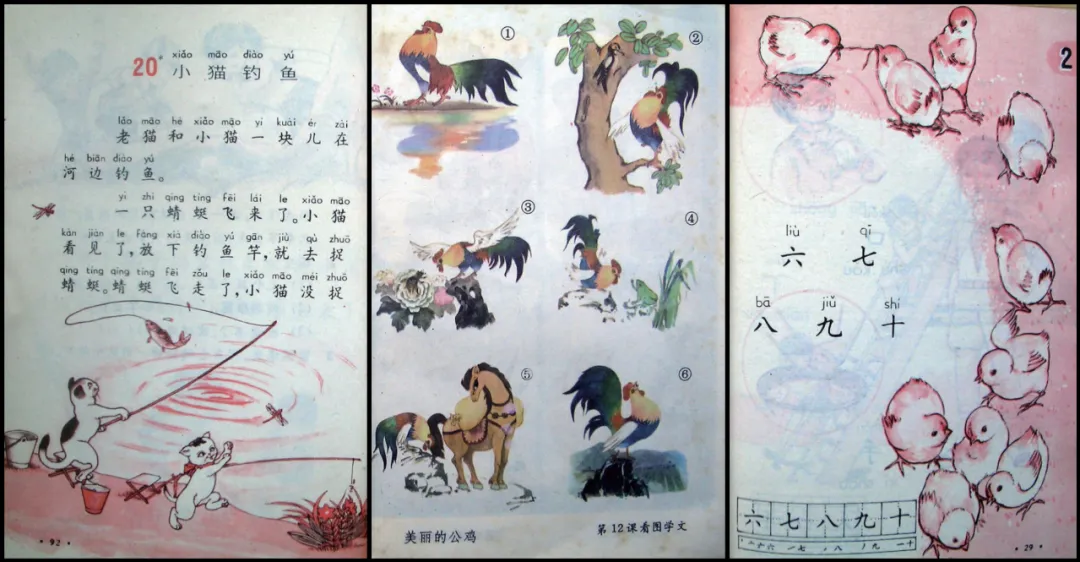 20
xiǎo māo diào yú
小 猫 钓 鱼
lǎo māo hé xiǎo māo yí kuài ér zài
老 猫 和 小 猫 一 块 儿 在
hé biān diào yú
河 边 钓 鱼。
yì zhī qīng tíng fēi lái le xiǎo māo
一 只 蜻 蜓 飞 来 了。小 猫
kàn jiàn le fàng xià diào yú gān jiù qù zhuō
看 见 了,放 下 钓 鱼 竿,就 去 捉
qīng tíng qīng tíng fēi zǒu le xiǎo māo méi zhuō
蜻 蜓。蜻 蜓 飞 走 了,小 猫 没 捉
· 92 ·
①
②
③
④
⑤
⑥
美丽的公鸡
第12课看图学文
2
liù qī
六 七
bā jiǔ shí
八 九 十
六 七 八 九 十
· 29 ·